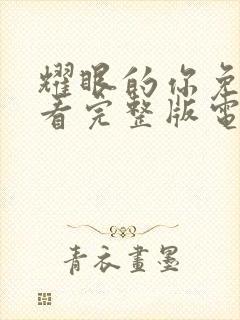 耀眼的你免
看完整版電
青衣畫墨